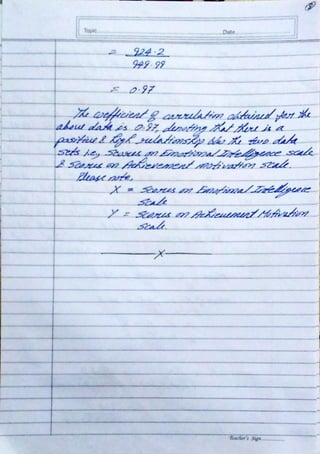 Topic Date
= 924.2
949.99
= 0.97
The coefficient of correlation obtained for the
above data is 0.97, denoting that there is a
positive & high relationship b/w the two data
sets i.e, Scores on Emotional Intelligence scale
& Scores on Achievement motivation scale.
Please note,
X = Scores on Emotional Intelligence
Scale
Y = Scores on Achievement Motivation
Scale.
X
Teacher's Sign